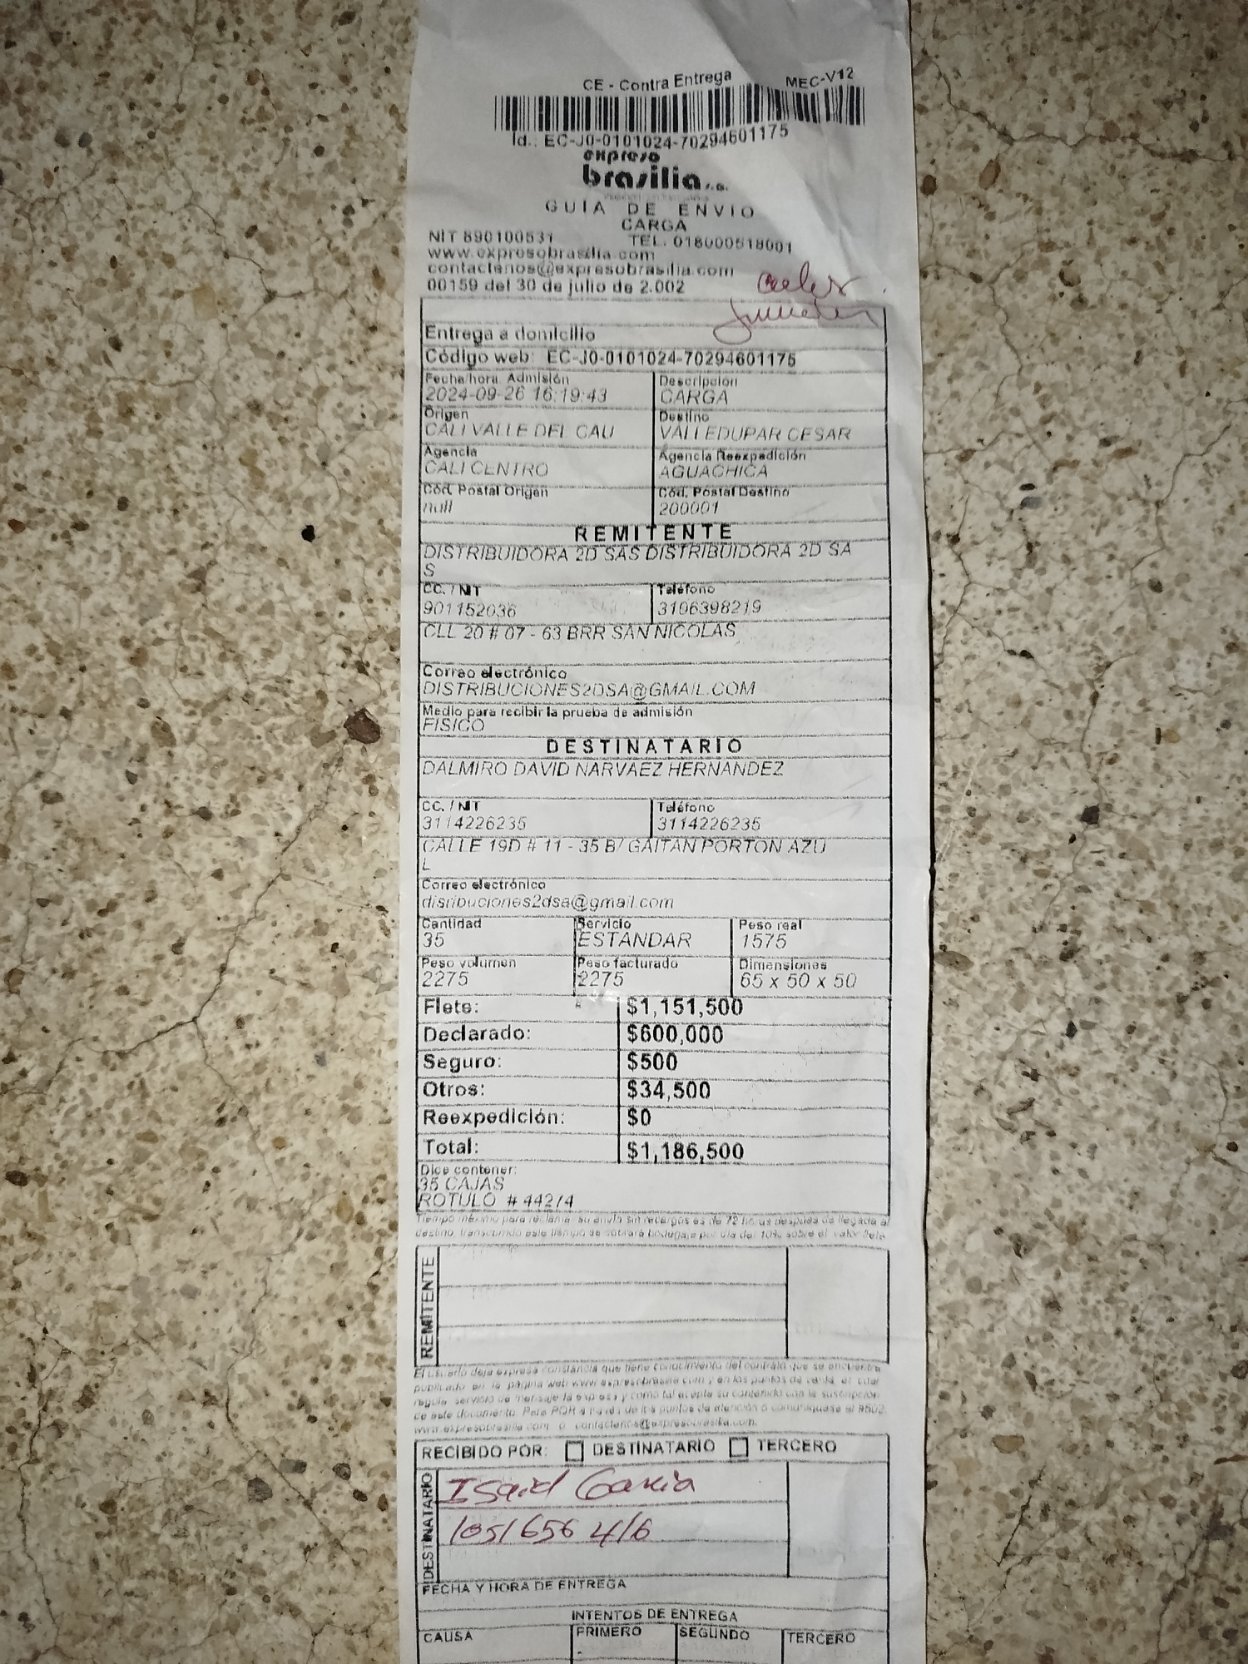 CE - Contra Entrega MEC-V12
Id.: EC-J0-0101024-70294601175
expreso
brasilia s.a.
GUIA DE ENVIO
CARGA
NIT 890100531 TEL. 018000518001
www.expresobrasilia.com
contactenos@expresobrasilia.com
00159 del 30 de julio de 2.002
Entrega a domicilio
Código web: EC-J0-0101024-70294601175
Fecha/hora Admisión Descripción
2024-09-26 16:19:43 CARGA
Origen Destino
CALI VALLE DEL CAU VALLEDUPAR CESAR
Agencia Agencia Reexpedición
CALI CENTRO AGUACHICA
Cód. Postal Origen Cód. Postal Destino
null 200001
REMITENTE
DISTRIBUIDORA 2D SAS DISTRIBUIDORA 2D SA
S
CC. / NIT Teléfono
901152036 3106398219
CLL 20 # 07 - 63 BRR SAN NICOLAS
Correo electrónico
DISTRIBUCIONES2DSA@GMAIL.COM
Medio para recibir la prueba de admisión
FISICO
DESTINATARIO
DALMIRO DAVID NARVAEZ HERNANDEZ
CC. / NIT Teléfono
3114226235 3114226235
CALLE 19D # 11 - 35 B/ GAITAN PORTON AZU
L
Correo electrónico
disribuciones2dsa@gmail.com
Cantidad Servicio Peso real
35 ESTANDAR 1575
Peso volumen Peso facturado Dimensiones
2275 2275 65 x 50 x 50
Flete: $1,151,500
Declarado: $600,000
Seguro: $500
Otros: $34,500
Reexpedición: $0
Total: $1,186,500
Dice contener:
35 CAJAS
ROTULO # 44274
Tiempo máximo para reclamar su envío sin recargos es de 72 horas después de llegada al
destino, transcurrido este tiempo se cobrará bodegaje por día del 10% sobre el valor flete
REMITENTE
El usuario deja expresa constancia que tiene conocimiento del contrato que se encuentra
publicado en la página web www.expresobrasilia.com y en los puntos de venta, el cual
regula servicio de mensajería expresa y como tal acepta su contenido con la suscripción
de este documento. Para PQR a través de los puntos de atención o comuníquese al
www.expresobrasilia.com o contactenos@expresobrasilia.com.
RECIBIDO POR: DESTINATARIO TERCERO
DESTINATARIO
Isaid Garcia
1051656 416
FECHA Y HORA DE ENTREGA
INTENTOS DE ENTREGA
CAUSA PRIMERO SEGUNDO TERCERO